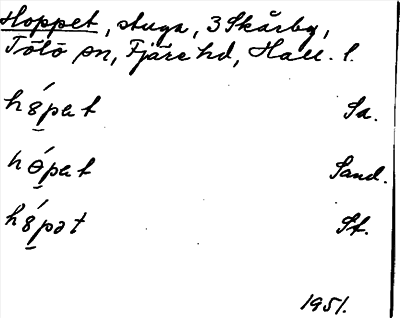 Hoppet, stuga, 3 Skårby,
Tölö sn, Fjäre hd, Hall. l.
hǿpat Sa.
hɵ́pat Sand.
hǿpət St.
1951.